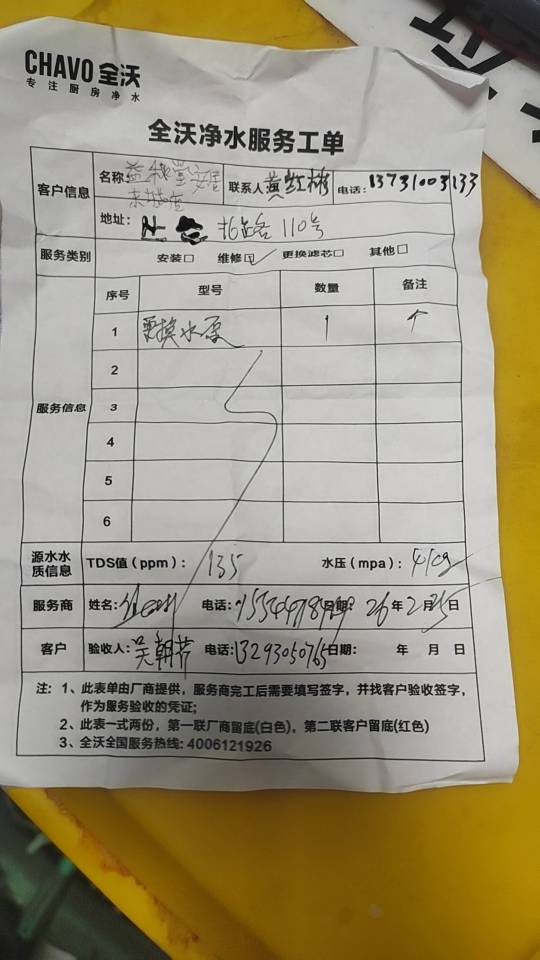 CHAVO 全沃
专注厨房净水
全沃净水服务工单
客户信息
名称:
联系人 黄红彬 电话: 13731003133
地址: 拓路 110号
服务类别 安装□ 维修☑ 更换滤芯□ 其他□
服务信息
序号 型号 数量 备注
1 更换水泵 1 个
2
3
4
5
6
源水水质信息 TDS值（ppm）: 135 水压（mpa）: 4kg
服务商 姓名: 电话: 日期: 26年2月25日
客户 验收人: 吴朝芳 电话: 13293050765 日期: 年 月 日
注: 1、此表单由厂商提供，服务商完工后需要填写签字，并找客户验收签字，
作为服务验收的凭证;
2、此表一式两份，第一联厂商留底(白色)，第二联客户留底(红色)
3、全沃全国服务热线: 4006121926